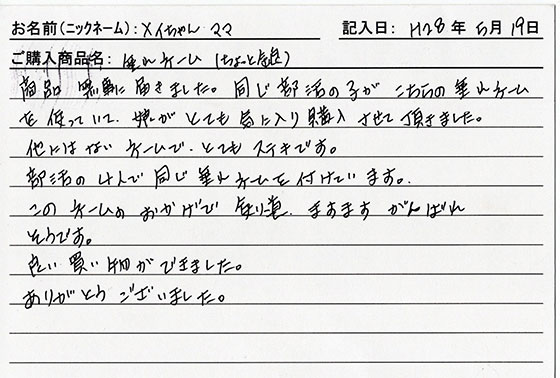 お名前(ニックネーム):メイちゃん ママ 記入日:H28年5月19日
ご購入商品名:垂れネーム(ちょっと急急)
商品 無事に届きました。同じ部活の子が こちらの垂れネーム
を使っていて、娘が とても 気に入り 購入 させて 頂きました。
他には ない ネームで、とても ステキです。
部活の 4人で 同じ 垂れネームを 付けています。
この ネームの おかげで 剣道、ますます がんばれ
そうです。
良い 買い物が できました。
ありがとう ございました。